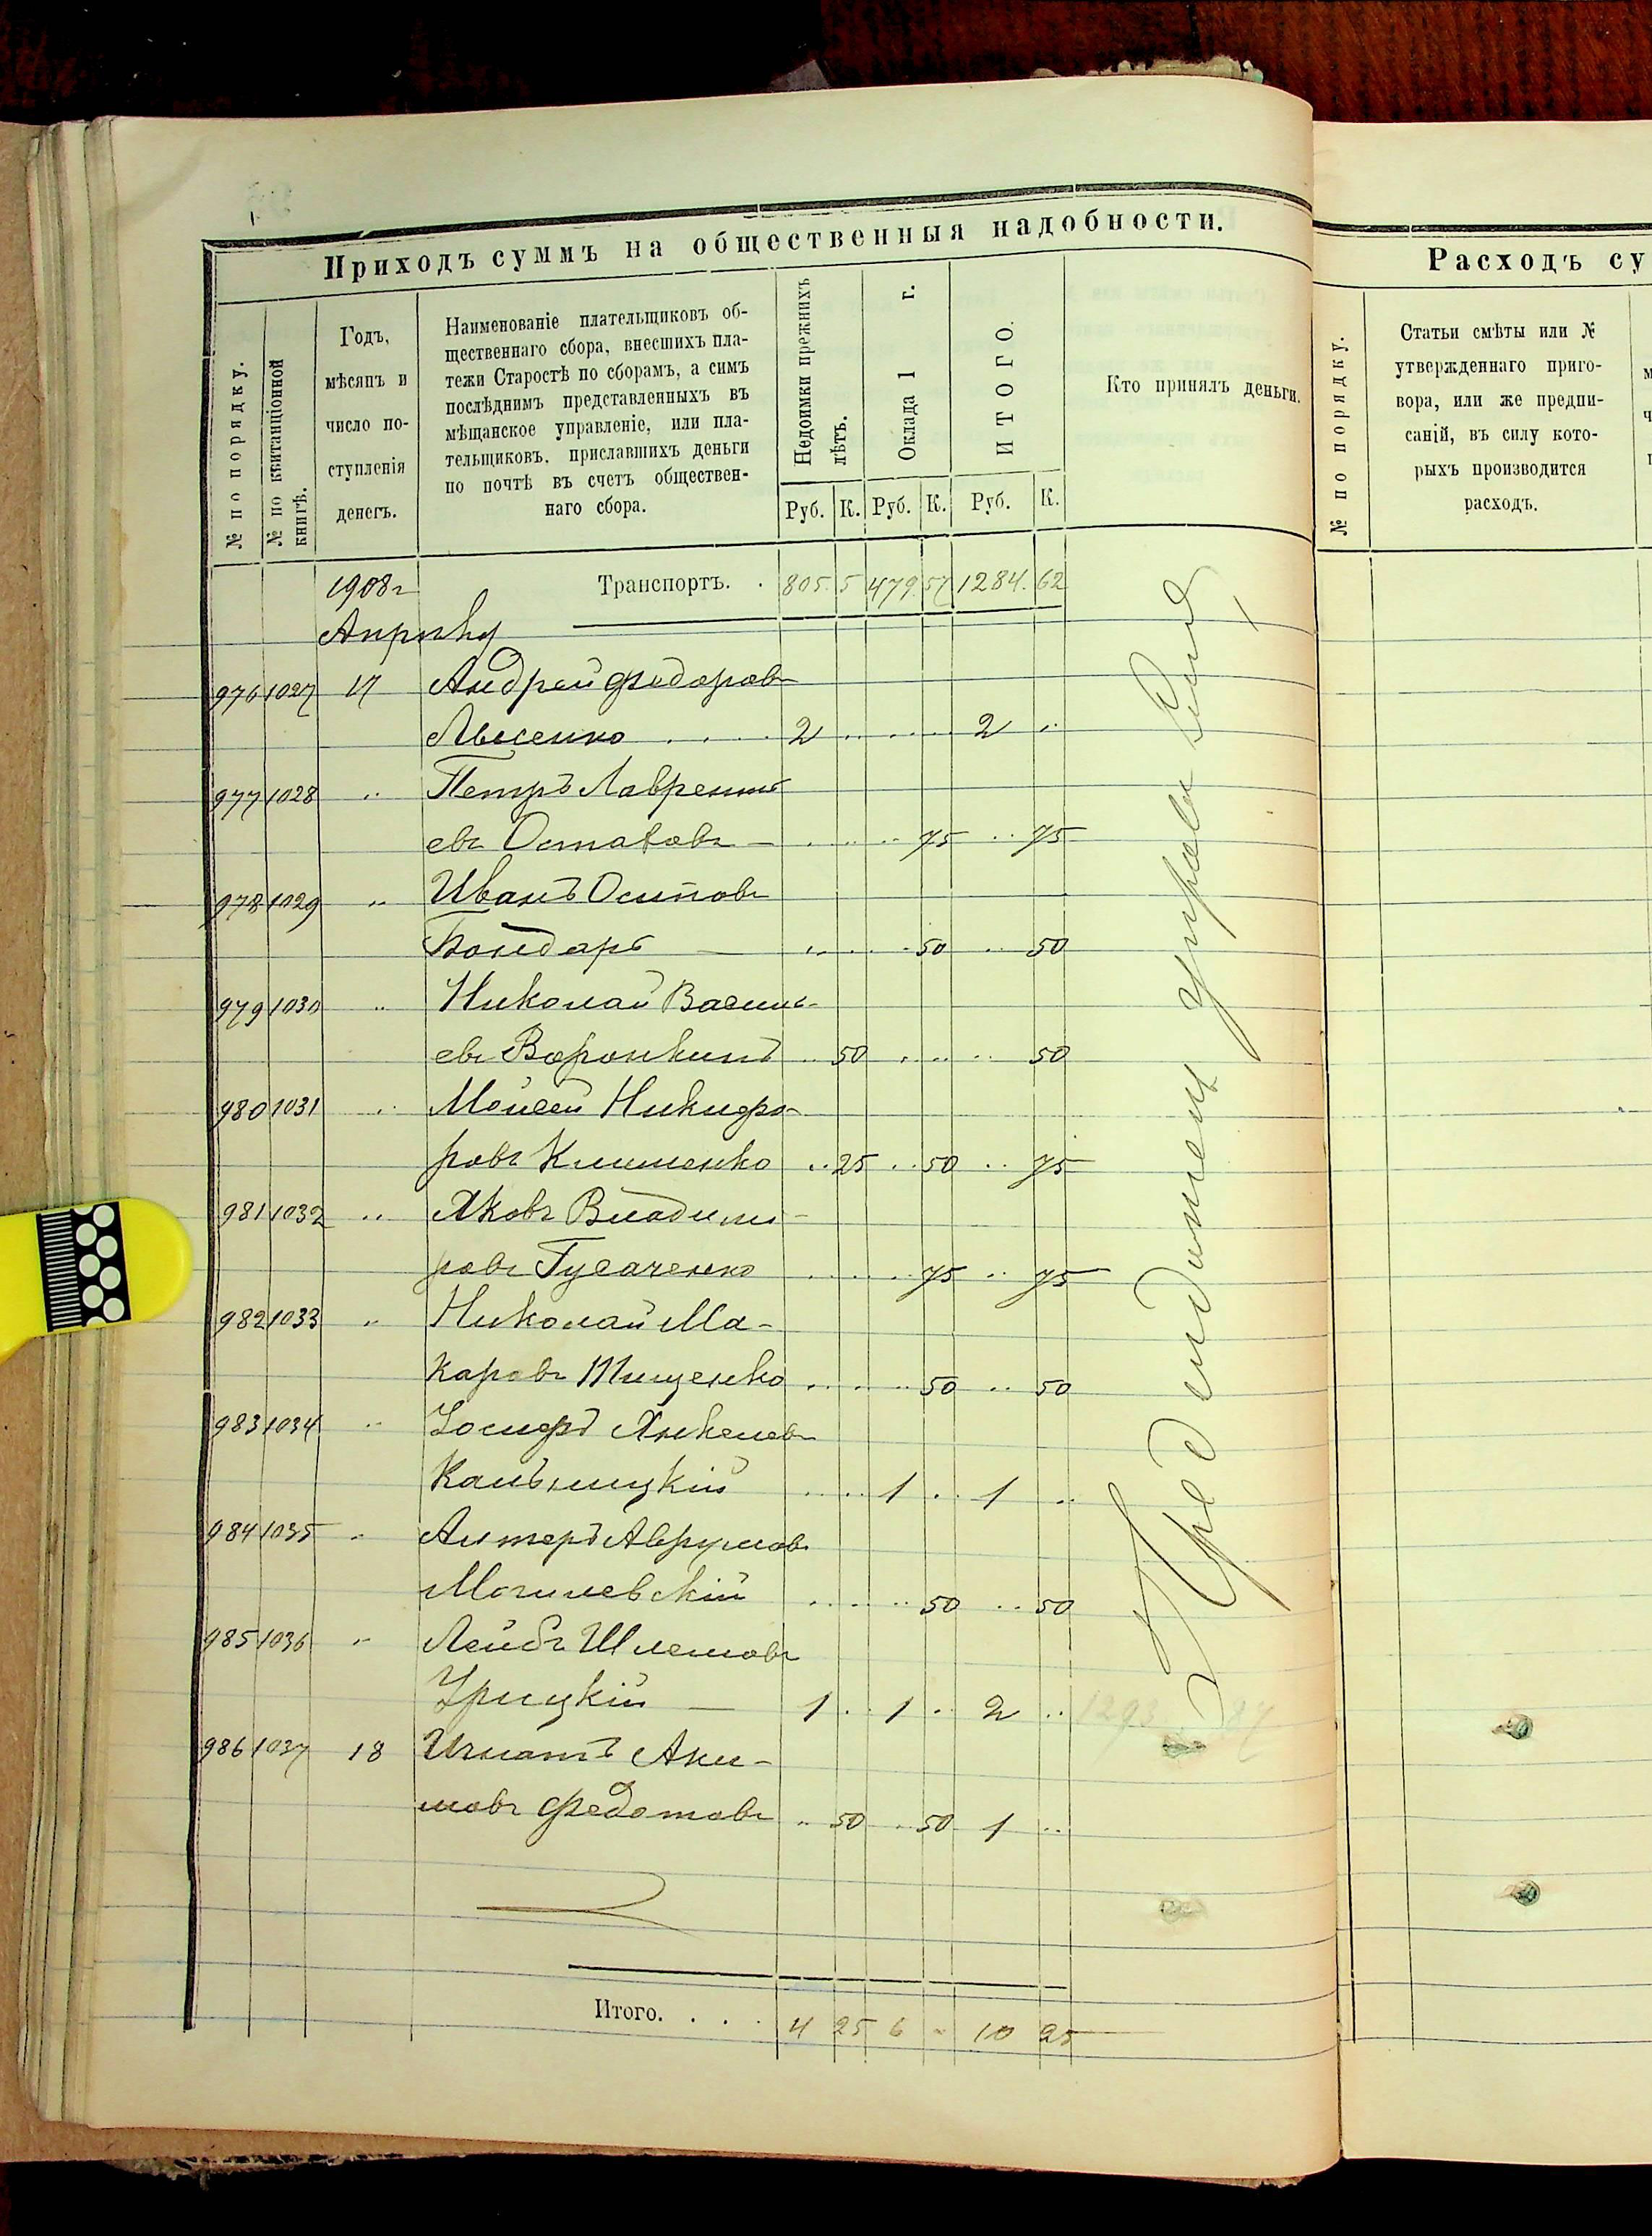 Приходъ суммъ на общественныя надобности.
№ по порядку.
№ по квитанціонной книгѣ.
Годъ,
мѣсяцъ и
число по-
ступленія
денегъ.
Наименованіе плательщиковъ об-
щественнаго сбора, внесшихъ пла-
тежи Старостѣ по сборамъ, а симъ
послѣднимъ представленныхъ въ
мѣщанское управленіе, или пла-
тельщиковъ, приславшихъ деньги
по почтѣ въ счетъ обществен-
наго сбора.
Недоимки прежнихъ
лѣтъ.
Оклада 1 г.
ИТОГО.
Руб. К. Руб. К. Руб. К.
Кто принялъ деньги.
1908 г Транспортъ. . 805. 5 479. 57 1284. 62
Апрѣль
976 1027 17 Андрей Федоровъ
Лысенко . . . . 2 .. .. .. 2 ..
977 1028 .. Петръ Лаврентъ
евъ Остаховъ — .. .. .. 75 .. 75
978 1029 .. Иванъ Осиповъ
Бондарь — .. .. .. 50 .. 50
979 1030 .. Николай Василь-
евъ Воронкинъ .. 50 .. .. .. 50
980 1031 .. Мойсей Никифо-
ровъ Клименко .. 25 .. 50 .. 75
981 1032 .. Яковъ Владими-
ровъ Гусаченко .. .. .. 75 .. 75
982 1033 .. Николай Ма-
каровъ Тищенко .. .. .. 50 .. 50
983 1034 .. Іосифъ Янкелевъ
Кальницкій .. .. 1 .. 1 ..
984 1035 .. Альтеръ Аврумовъ
Могилевскій .. .. .. 50 .. 50
985 1036 .. Лейбъ Шлемовъ
Урицкій — 1 .. 1 .. 2 ..
986 1037 18 Игнатъ Аки-
мовъ Федотовъ .. 50 .. 50 1 ..
Итого. . . . 4 25 6 .. 10 25
1293. 87
Расходъ су
№ по порядку.
Статьи смѣты или №
утвержденнаго приго-
вора, или же предпи-
саній, въ силу кото-
рыхъ производится
расходъ.